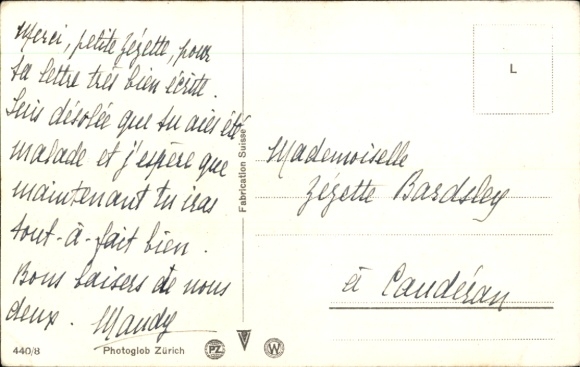 Merci, petite Zézette, pour
ta lettre très bien écrite.
Suis désolée que tu aies été
malade et j'espère que
maintenant tu iras
tout-à-fait bien.
Bons baisers de nous
deux. Maudy
Fabrication Suisse
L
Mademoiselle
Zézette Bardsley
à Caudéran
440/8
Photoglob Zürich
PZ
W